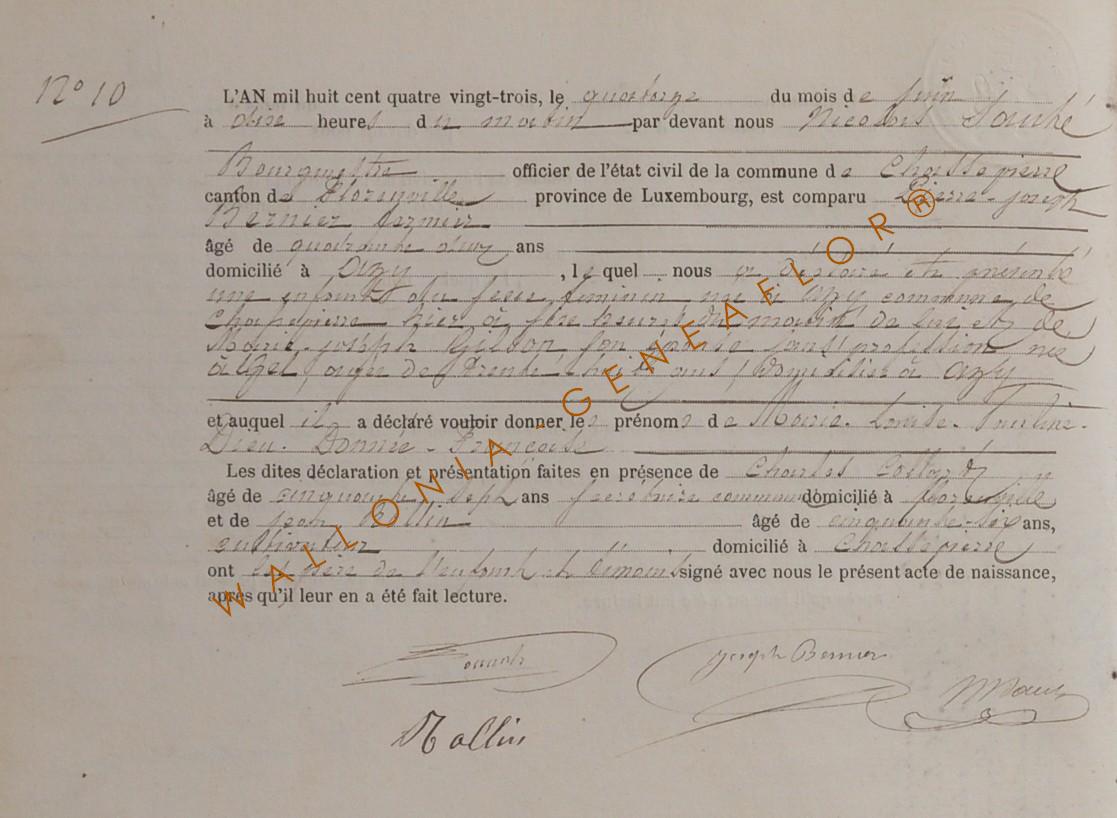 N° 10
L'AN mil huit cent quatre vingt-trois, le quatorze du mois de Juin
à heures du matin par devant nous Nicolas
Bourgmestre officier de l'état civil de la commune de Chassepierre
canton de Florenville province de Luxembourg, est comparu Pierre-Joseph
Bernier
âgé de quarante deux ans
domicilié à Azy, lequel nous a déclaré et présenté
une enfant du sexe féminin né à Azy commune de
Chassepierre hier à heures du matin de lui et de
Marie-Joseph Gilson son épouse sans profession née
à âgée de trente huit ans, domiciliée à Azy
et auquel il a déclaré vouloir donner les prénoms de Marie-Louise-Pauline-
Dieu-Donnée-Françoise
Les dites déclaration et présentation faites en présence de Charles
âgé de cinquante sept ans secrétaire communal domicilié à Florenville
et de Jean Rollin âgé de cinquante-six ans,
cultivateur domicilié à Chassepierre
ont les père de l'enfant et témoins signé avec nous le présent acte de naissance,
après qu'il leur en a été fait lecture.
Joseph Bernier
Rollin
WALLONIA-GENEAFLOR®